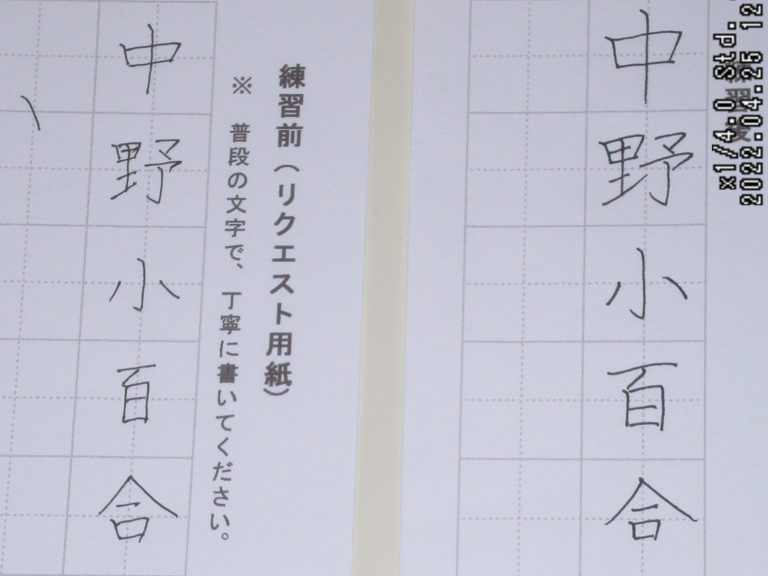 練習後
中野小百合
練習前（リクエスト用紙）
※　普段の文字で、丁寧に書いてください。
中野小百合
x1/4.0 Std.
2022.04.25 12